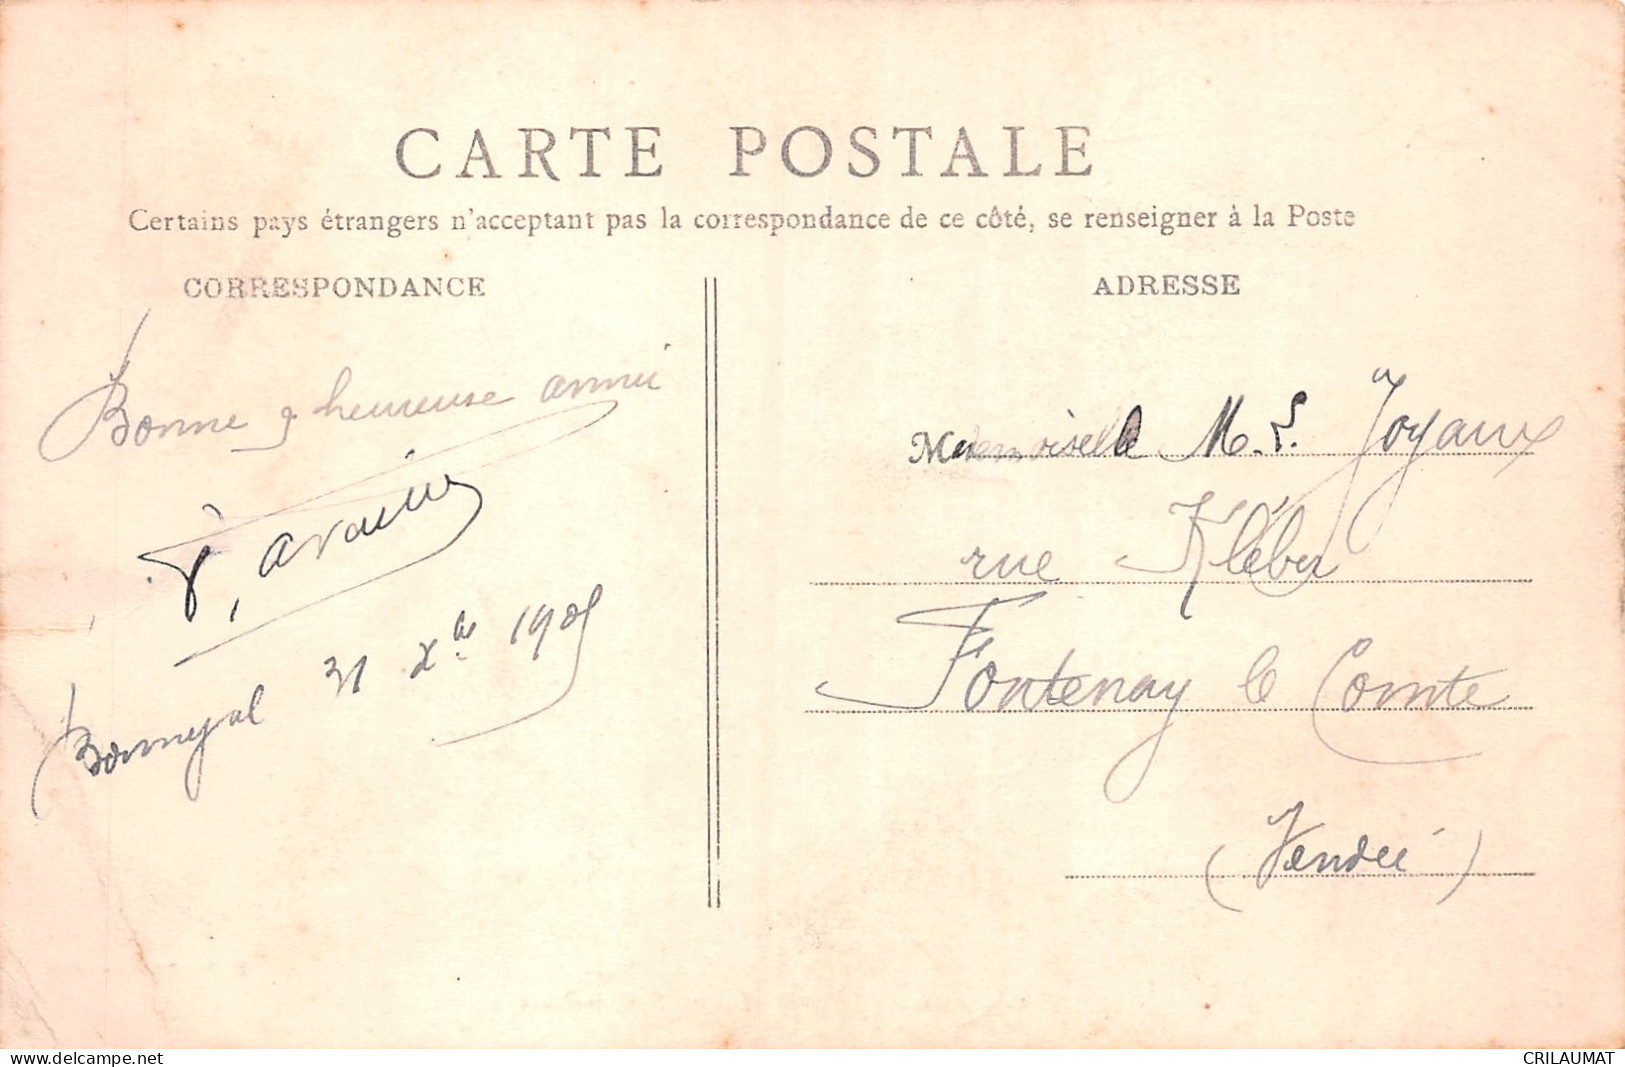 CARTE POSTALE
Certains pays étrangers n'acceptant pas la correspondance de ce côté, se renseigner à la Poste
CORRESPONDANCE
Bonne & heureuse année
31 Xbre 1905
ADRESSE
Mademoiselle M. L. Joyaux
rue Kléber
Fontenay le Comte
(Vendée)
www.delcampe.net
CRILAUMAT